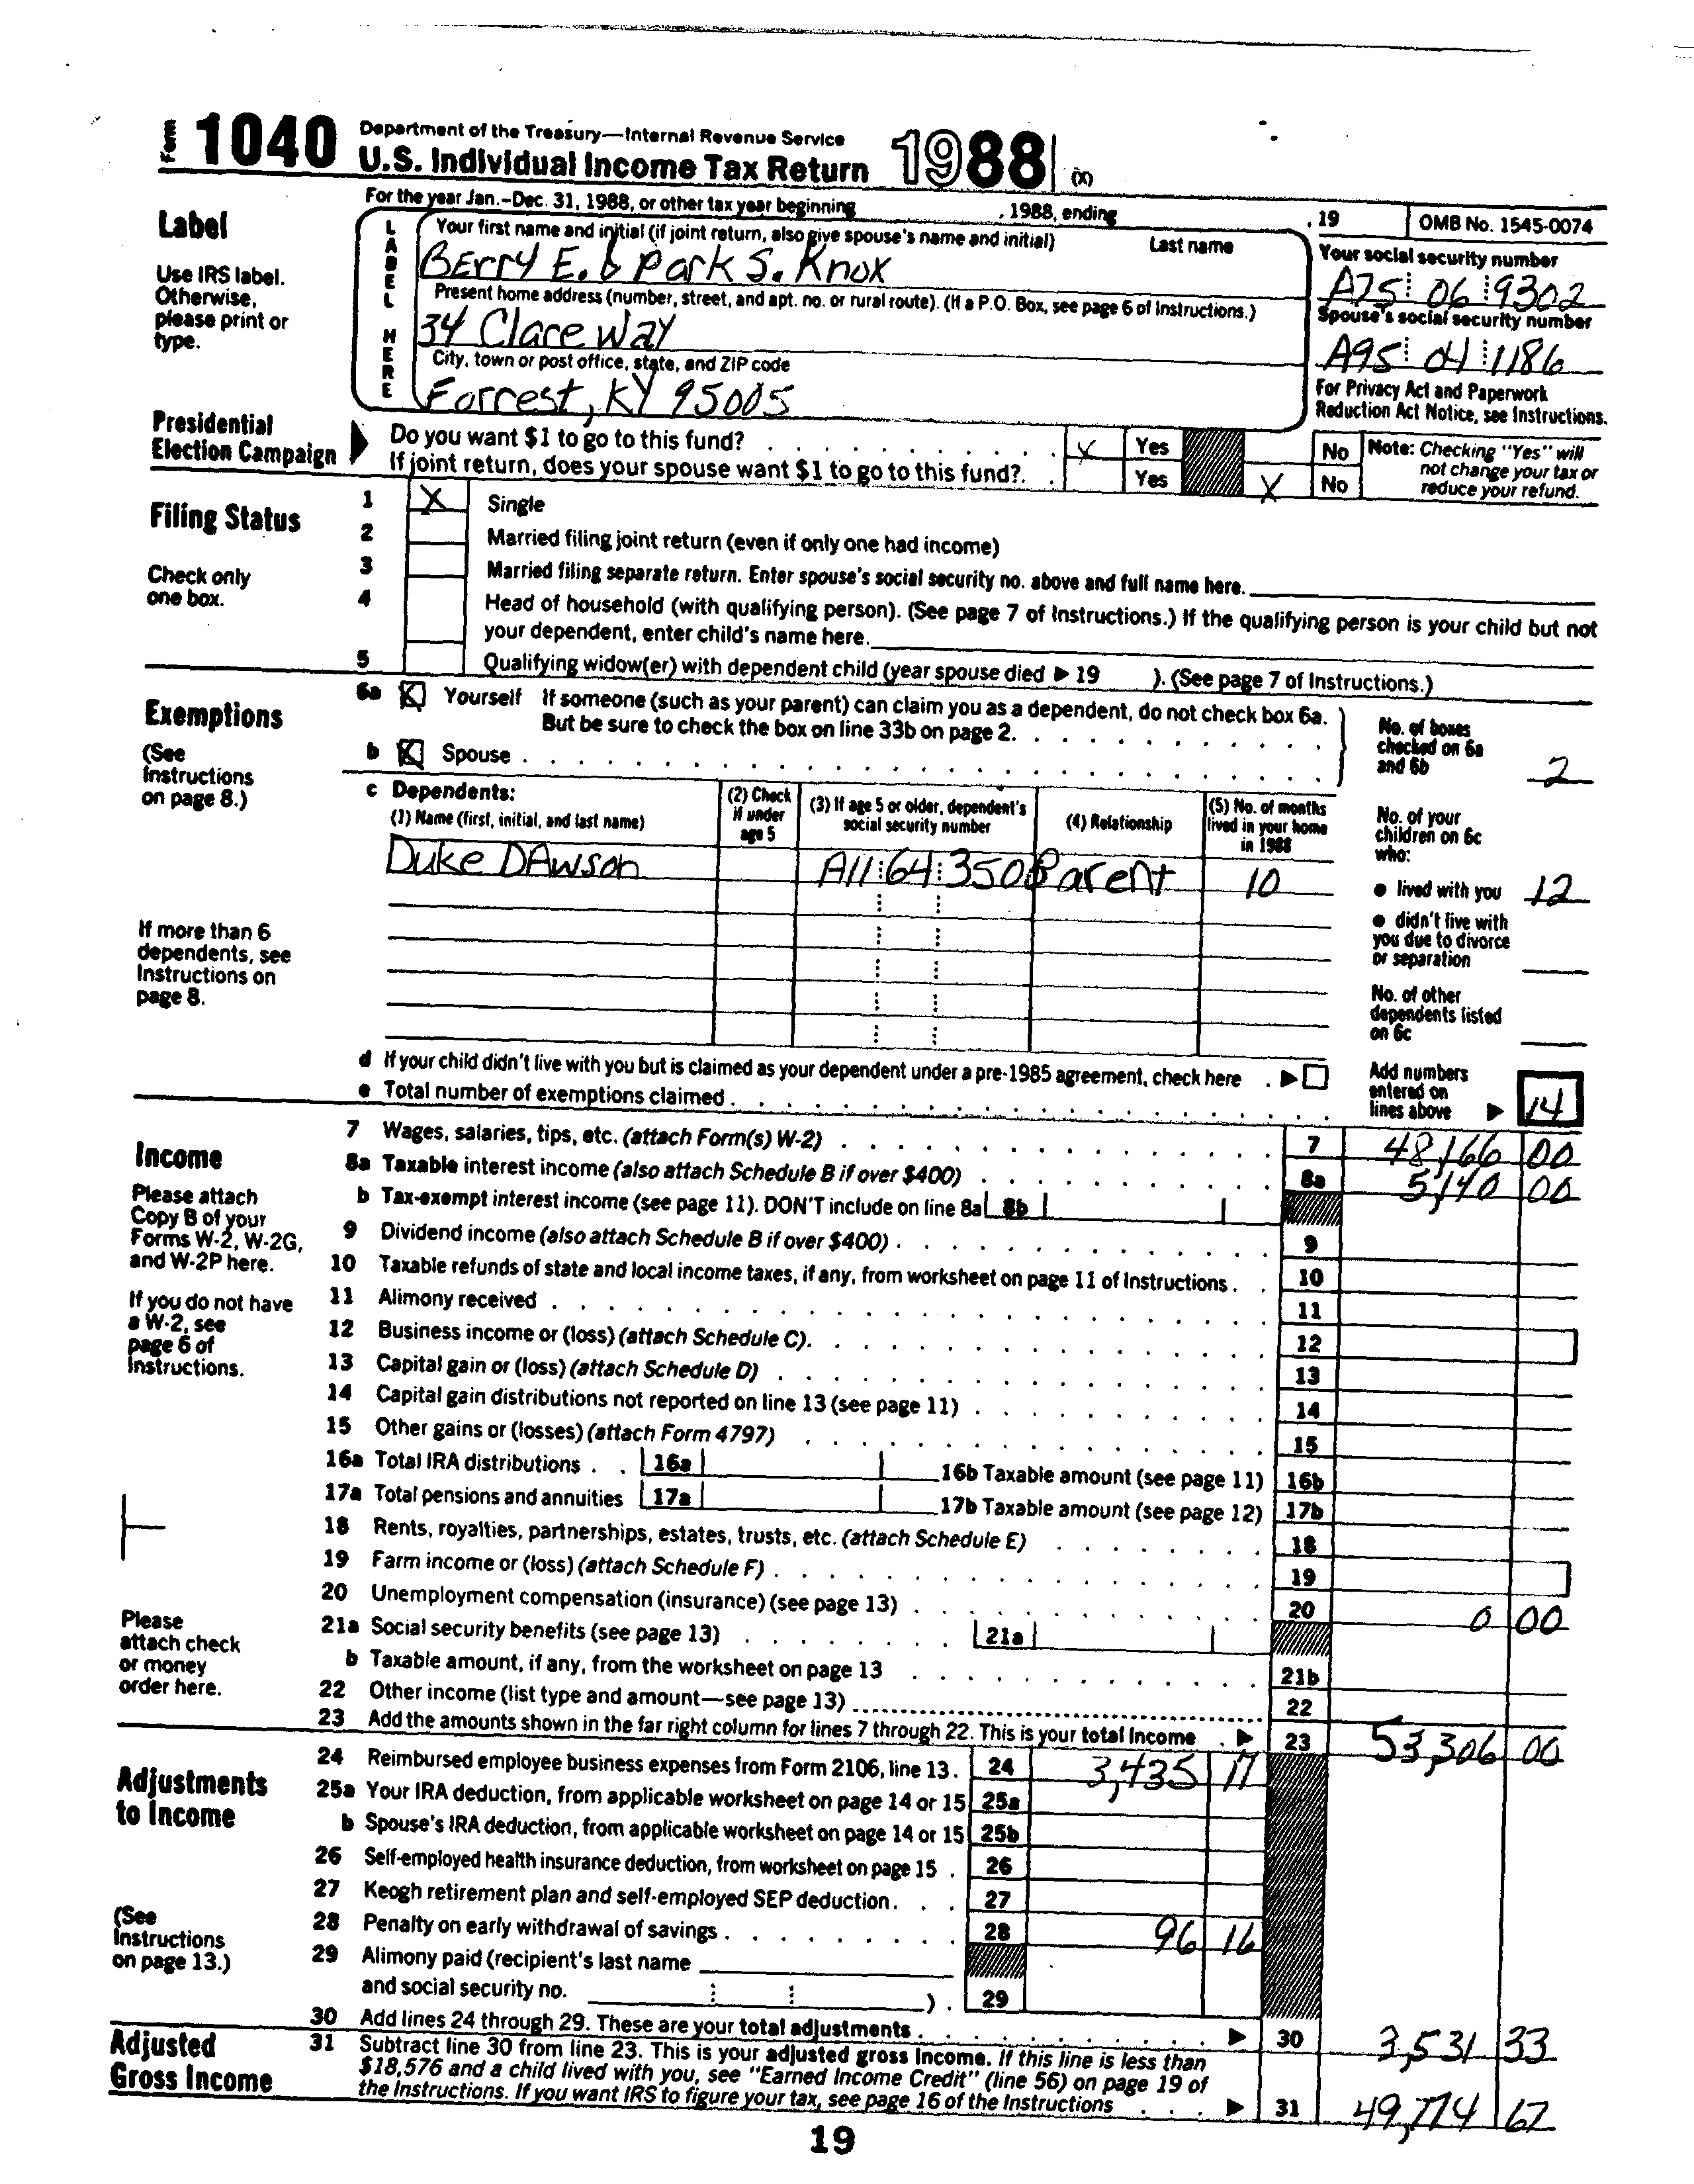 Form 1040 Department of the Treasury—Internal Revenue Service
U.S. Individual Income Tax Return 1988 (X)
For the year Jan.-Dec. 31, 1988, or other tax year beginning , 1988, ending , 19 OMB No. 1545-0074
Label
Use IRS label.
Otherwise,
please print or
type.
LABEL HERE
Your first name and initial (if joint return, also give spouse's name and initial) Last name
Berry E. & Park S. Knox
Your social security number
A75 06 9302
Present home address (number, street, and apt. no. or rural route). (If a P.O. Box, see page 6 of Instructions.)
34 Clare Way
Spouse's social security number
A95 04 1186
City, town or post office, state, and ZIP code
Forrest, KY 95005
For Privacy Act and Paperwork
Reduction Act Notice, see Instructions.
Presidential
Election Campaign
Do you want $1 to go to this fund? X Yes No
If joint return, does your spouse want $1 to go to this fund? Yes X No
Note: Checking "Yes" will
not change your tax or
reduce your refund.
Filing Status
Check only
one box.
1 X Single
2 Married filing joint return (even if only one had income)
3 Married filing separate return. Enter spouse's social security no. above and full name here.
4 Head of household (with qualifying person). (See page 7 of Instructions.) If the qualifying person is your child but not
your dependent, enter child's name here.
5 Qualifying widow(er) with dependent child (year spouse died ▶ 19 ). (See page 7 of Instructions.)
Exemptions
(See
Instructions
on page 8.)
6a X Yourself If someone (such as your parent) can claim you as a dependent, do not check box 6a.
But be sure to check the box on line 33b on page 2.
b X Spouse
No. of boxes
checked on 6a
and 6b 2
c Dependents:
(1) Name (first, initial, and last name)
(2) Check
if under
age 5
(3) If age 5 or older, dependent's
social security number
(4) Relationship
(5) No. of months
lived in your home
in 1988
Duke DAwson A11 64 3508 Parent 10
If more than 6
dependents, see
Instructions on
page 8.
No. of your
children on 6c
who:
● lived with you 12
● didn't live with
you due to divorce
or separation
No. of other
dependents listed
on 6c
d If your child didn't live with you but is claimed as your dependent under a pre-1985 agreement, check here ▶
e Total number of exemptions claimed
Add numbers
entered on
lines above ▶ 14
Income
Please attach
Copy B of your
Forms W-2, W-2G,
and W-2P here.
If you do not have
a W-2, see
page 6 of
Instructions.
Please
attach check
or money
order here.
7 Wages, salaries, tips, etc. (attach Form(s) W-2) 7 48,166 00
8a Taxable interest income (also attach Schedule B if over $400) 8a 5,140 00
b Tax-exempt interest income (see page 11). DON'T include on line 8a 8b
9 Dividend income (also attach Schedule B if over $400) 9
10 Taxable refunds of state and local income taxes, if any, from worksheet on page 11 of Instructions 10
11 Alimony received 11
12 Business income or (loss) (attach Schedule C) 12
13 Capital gain or (loss) (attach Schedule D) 13
14 Capital gain distributions not reported on line 13 (see page 11) 14
15 Other gains or (losses) (attach Form 4797) 15
16a Total IRA distributions 16a 16b Taxable amount (see page 11) 16b
17a Total pensions and annuities 17a 17b Taxable amount (see page 12) 17b
18 Rents, royalties, partnerships, estates, trusts, etc. (attach Schedule E) 18
19 Farm income or (loss) (attach Schedule F) 19
20 Unemployment compensation (insurance) (see page 13) 20 0 00
21a Social security benefits (see page 13) 21a
b Taxable amount, if any, from the worksheet on page 13 21b
22 Other income (list type and amount—see page 13) 22
23 Add the amounts shown in the far right column for lines 7 through 22. This is your total income ▶ 23 53,306 00
Adjustments
to Income
(See
Instructions
on page 13.)
24 Reimbursed employee business expenses from Form 2106, line 13. 24 3,435 17
25a Your IRA deduction, from applicable worksheet on page 14 or 15 25a
b Spouse's IRA deduction, from applicable worksheet on page 14 or 15 25b
26 Self-employed health insurance deduction, from worksheet on page 15 26
27 Keogh retirement plan and self-employed SEP deduction 27
28 Penalty on early withdrawal of savings 28 96 16
29 Alimony paid (recipient's last name
and social security no. ) 29
30 Add lines 24 through 29. These are your total adjustments ▶ 30 3,531 33
Adjusted
Gross Income
31 Subtract line 30 from line 23. This is your adjusted gross income. If this line is less than
$18,576 and a child lived with you, see "Earned Income Credit" (line 56) on page 19 of
the Instructions. If you want IRS to figure your tax, see page 16 of the Instructions ▶ 31 49,774 67
19